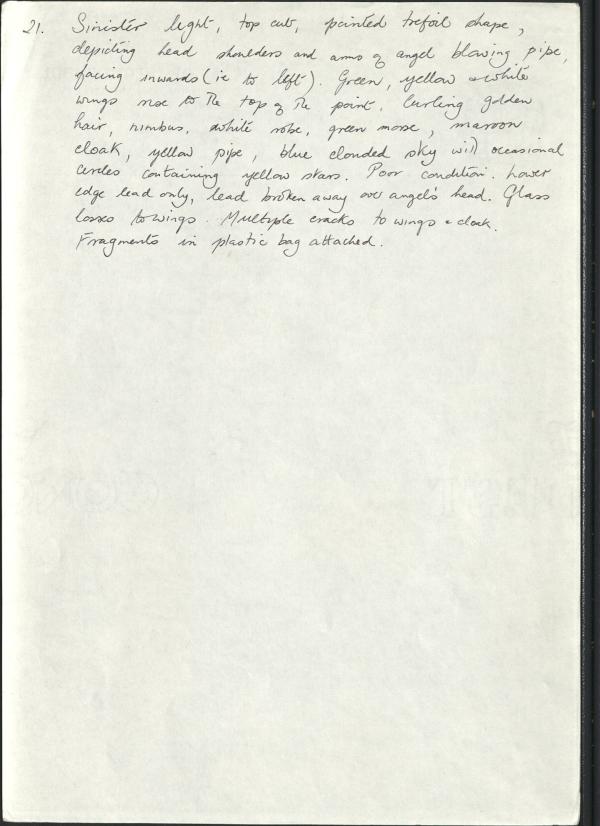 21. Sinister light, top cut, pointed trefoil shape,
depicting head shoulders and arms of angel blowing pipe,
facing inwards (ie to left). Green, yellow & white
wings rise to the top of the point. Curling golden
hair, nimbus, white robe, green morse, maroon
cloak, yellow pipe, blue clouded sky with occasional
circles containing yellow stars. Poor condition. Lower
edge lead only, lead broken away over angel's head. Glass
losses to wings. Multiple cracks to wings & cloak.
Fragments in plastic bag attached.